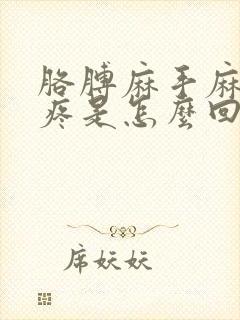 胳膊麻手麻
疼是怎麼回
席妖妖